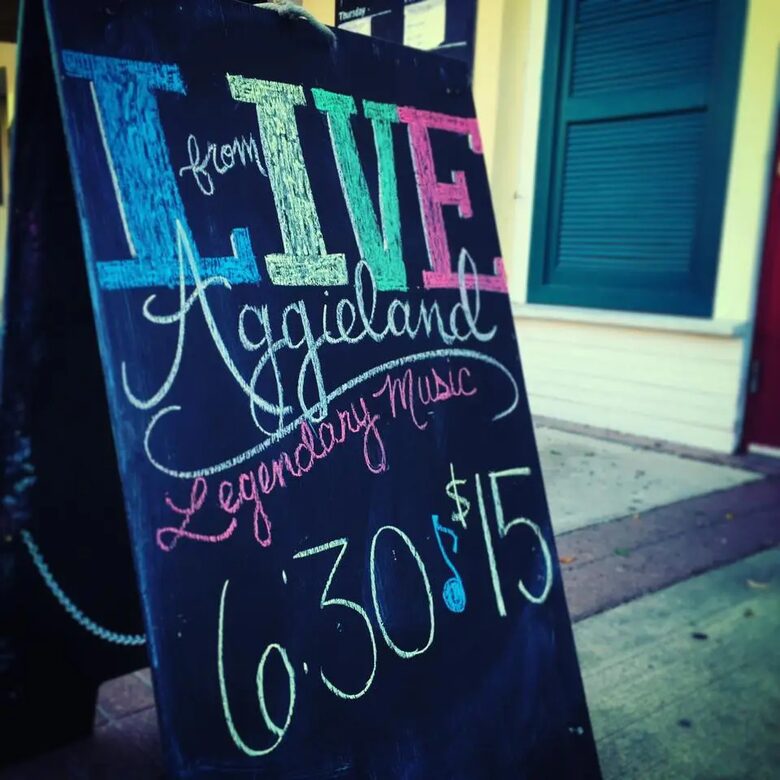 Thursday
LIVE
from
Aggieland
Legendary Music
6:30 ♪ $15